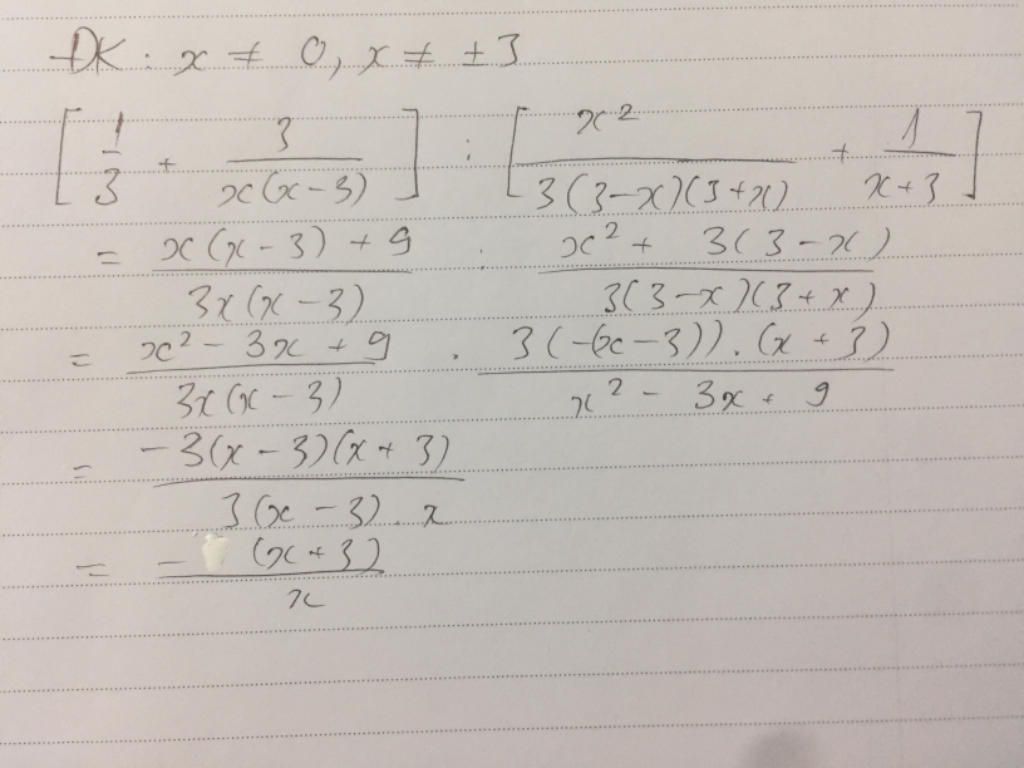 ĐK : x ≠ 0, x ≠ ±3
[ 1/3 + 3/(x(x-3)) ] : [ x²/(3(3-x)(3+x)) + 1/(x+3) ]
= (x(x-3) + 9)/(3x(x-3)) : (x² + 3(3-x))/(3(3-x)(3+x))
= (x² - 3x + 9)/(3x(x-3)) . (3(-(x-3)).(x+3))/(x² - 3x + 9)
= (-3(x-3)(x+3))/(3(x-3).x)
= (-(x+3))/x